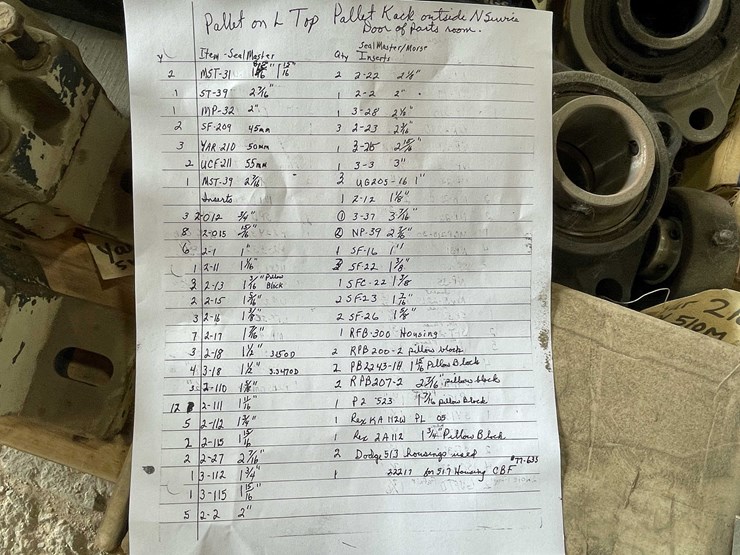 Pallet on L Top Pallet Rack outside N Service
Door of parts room.
Item - SealMaster Qty SealMaster/Morse Inserts
2 MST-31 1 15/16 2 2-22 2 1/8"
1 ST-39 2 7/16" 1 2-2 2"
1 MP-32 2" 1 3-28 2 1/2"
2 SF-209 45mm 3 2-23 2 3/16"
3 YAR 210 50mm 1 2 15/16"
2 UCF-211 55mm 1 3-3 3"
1 MST-39 2 7/16 UG205-16 1"
Inserts 1 2-12 1 1/8"
3 2-012 3/4" 1 3-37 3 7/16"
8 2-015 15/16" 2 NP-39 2 7/16"
6 2-1 1" 1 SF-16 1"
1 2-11 1 1/16" SF-22 1 3/8"
2-13 1 3/16" Pillow Block 1 SFC-22 1 3/8"
2 2-15 2 SF-23 1 7/16"
3 2-16 2 SF-26 1 5/8"
7 2-17 1 7/16" 1 RFB-300 Housing
3 2-18 1 1/2" 3.150D 2 RPB 200-2 pillow block
4 3-18 1 1/2" 3.3470D 2 PB2243-1H 1 15/16 Pillow Block
2-110 1 5/8" 2 RPB207-2 2 7/16" pillow block
12 2-111 1 11/16 1 P2 523 1 7/16 pillow Block
5 2-112 1 3/4" 1 Rex KA 112W PL
2 2-115 1 15/16 1 Rex 2A112 1 3/4" Pillow Block
2 2-27 2 7/16" 2 Dodge 513 housings used
1 3-112 1 3/4" 1 22217 for 517 Housing CBF #77-633
1 3-115 1 15/16"
5 2-2 2"
510M